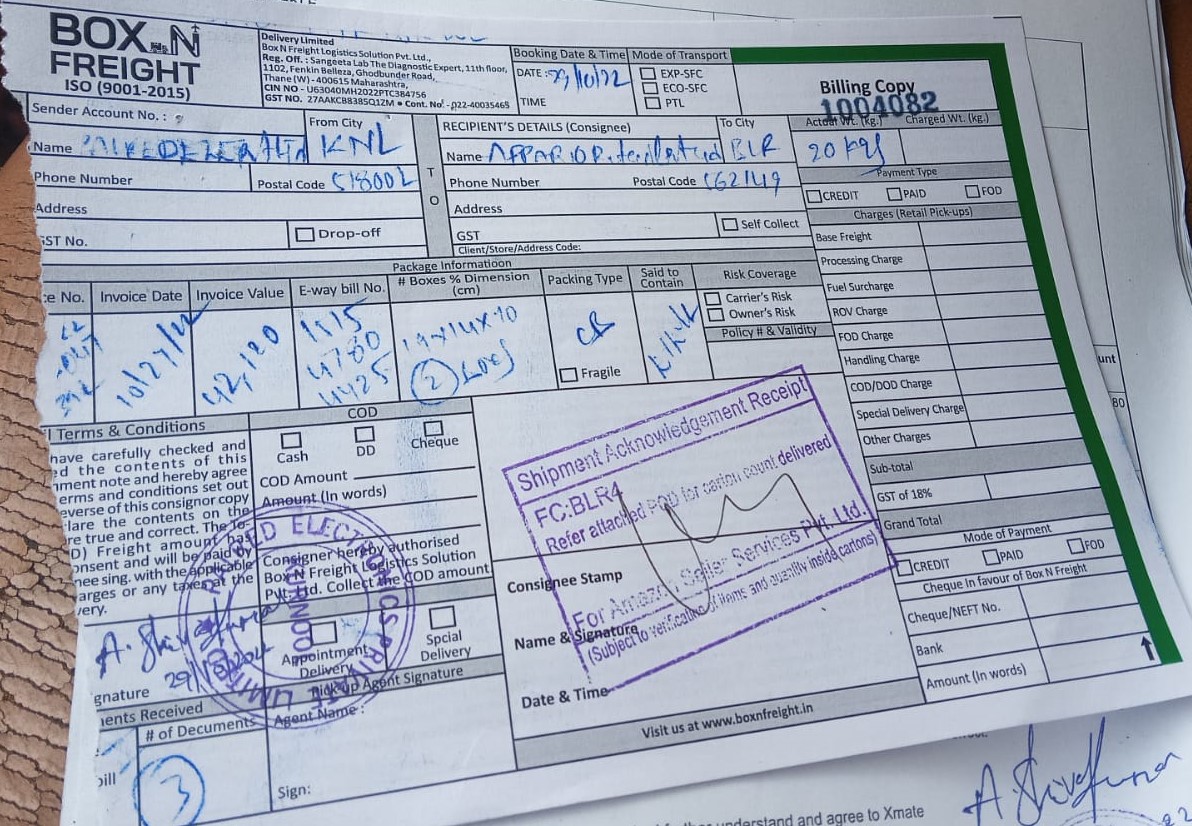 BOX N
FREIGHT
ISO (9001-2015)
Delivery Limited
Box N Freight Logistics Solution Pvt. Ltd.,
Reg. Off. : Sangeeta Lab The Diagnostic Expert, 11th floor,
1102, Fenkin Belleza, Ghodbunder Road,
Thane (W) - 400615 Maharashtra,
CIN NO - U63040MH2022PTC384756
GST NO. 27AAKCB8385Q1ZM • Cont. No. - 022-40035465
Booking Date & Time
DATE : 29/10/22
TIME
Mode of Transport
EXP-SFC
ECO-SFC
PTL
Billing Copy
1004082
Sender Account No. :
From City
Name KNL
Phone Number Postal Code 518002
Address
GST No. Drop-off
T
O
RECIPIENT'S DETAILS (Consignee) To City
Name APPARIO BLR
Phone Number Postal Code 562149
Address
GST Self Collect
Client/Store/Address Code:
Actual Wt. (kg.) Charged Wt. (kg.)
20 kgs
Payment Type
CREDIT PAID FOD
Charges (Retail Pick-ups)
Base Freight
Processing Charge
Fuel Surcharge
ROV Charge
FOD Charge
Handling Charge
COD/DOD Charge
Special Delivery Charge
Other Charges
Sub-total
GST of 18%
Grand Total
Mode of Payment
CREDIT PAID FOD
Cheque in favour of Box N Freight
Cheque/NEFT No.
Bank
Amount (In words)
Package Informatioon
ce No. Invoice Date Invoice Value E-way bill No. # Boxes % Dimension (cm) Packing Type Said to Contain Risk Coverage
10/27/22 42,120
1115
4780
4425
② 
CB
Fragile
Carrier's Risk
Owner's Risk
Policy # & Validity
l Terms & Conditions
have carefully checked and
ed the contents of this
nment note and hereby agree
erms and conditions set out
everse of this consignor copy
lare the contents on the
re true and correct. The To-
D) Freight amount has
onsent and will be paid by
nee sing. with the applicable
arges or any taxes at the
very.
COD
Cash DD Cheque
COD Amount
Amount (In words)
Consigner hereby authorised
Box N Freight Logistics Solution
Pvt. Ltd. Collect the COD amount
Appointment Delivery
Spcial Delivery
Pick-up Agent Signature
Agent Name :
Sign:
gnature
ents Received
# of Documents
bill
③
KURNOOL
Shipment Acknowledgement Receipt
FC:BLR4
Refer attached POD for carton count delivered
For Amazon Seller Services Pvt. Ltd.
(Subject to verification of items and quantity inside cartons)
Consignee Stamp
Name & Signature
Date & Time
Visit us at www.boxnfreight.in
unt
80
understand and agree to Xmate